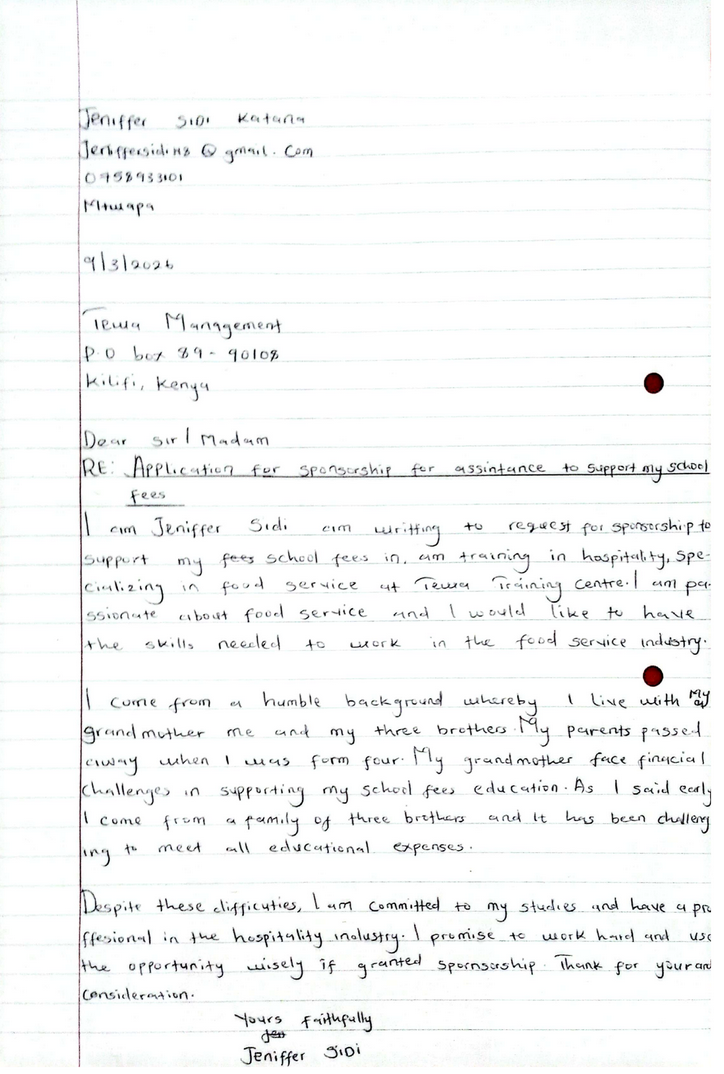 Jeniffer SIDI Katana
Jeniffersidi118 @ gmail. Com
0958933101
Mtwapa
9/3/2026
Tewa Management
P.O box 89 - 90108
Kilifi, Kenya
Dear sir / Madam
RE: Application for sponsorship for assintance to support my school
fees
I am Jeniffer Sidi am writting to request for sponsorship to
support my fees school fees in. am training in hospitality, spe-
cializing in food service at Tewa Training centre. I am pa-
ssionate about food service and I would like to have
the skills needed to work in the food service industry.
I come from a humble background whereby I live with My
grandmother me and my three brothers. My parents passed
away when I was form four. My grandmother face finacial
challenges in supporting my school fees education. As I said early
I come from a family of three brothers and it has been challeng
ing to meet all educational expenses.
Despite these difficuties, I am committed to my studies and have a pro
ffesional in the hospitality industry. I promise to work hard and use
the opportunity wisely if granted spornsorship. Thank for your
consideration.
Yours faithfully
Jen
Jeniffer SIDI